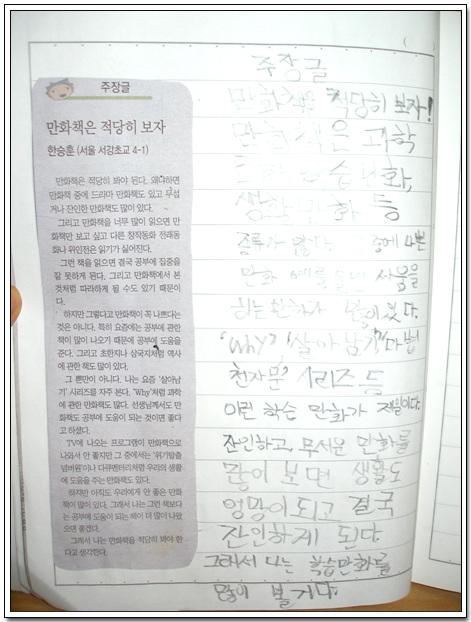 주장글
만화책은 적당히 보자
한승훈 (서울 서강초교 4-1)
만화책은 적당히 봐야 된다. 왜냐하면
만화책 중에 드라마 만화책도 있고 무섭
거나 잔인한 만화책도 많이 있다.
그리고 만화책을 너무 많이 읽으면 만
화책만 보고 싶고 다른 창작동화 전래동
화나 위인전은 읽기가 싫어진다.
그런 책을 읽으면 결국 공부에 집중을
잘 못하게 된다. 그리고 만화책에서 본
것처럼 따라하게 될 수도 있기 때문이
다.
하지만 그렇다고 만화책이 꼭 나쁘다는
것은 아니다. 특히 요즘에는 공부에 관한
책이 많이 나오기 때문에 공부에 도움을
준다. 그리고 초한지나 삼국지처럼 역사
에 관한 책도 많이 있다.
그 뿐만이 아니다. 나는 요즘 '살아남
기' 시리즈를 자주 본다. 'Why'처럼 과학
에 관한 만화책도 많다. 선생님께서도 만
화책도 공부에 도움이 되는 것이면 좋다
고 하셨다.
TV에 나오는 프로그램이 만화책으로
나와서 안 좋지만 그 중에서는 '위기탈출
넘버원'이나 다큐멘터리처럼 우리의 생활
에 도움을 주는 만화책도 있다.
하지만 아직도 우리에게 안 좋은 만화
책이 많이 있다. 그래서 나는 그런 책보다
는 공부에 도움이 되는 책이 더 많이 나왔
으면 좋겠다.
그래서 나는 만화책을 적당히 봐야 한
다고 생각한다.
주장글
만화책은 적당히 보자!
만화책은 과학
만화, 학습만화,
생활만화 등
종류가 많다. 중에 나쁜
만화 예를 들면 싸움을
하는 만화가 많이 있다.
'Why?' '살아남기' '마법
천자문' 시리즈 등
이런 학습 만화가 제일이다.
잔인하고, 무서운 만화를
많이 보면 생활도
엉망이 되고 결국
잔인하게 된다.
그래서 나는 학습만화를
많이 볼거다.